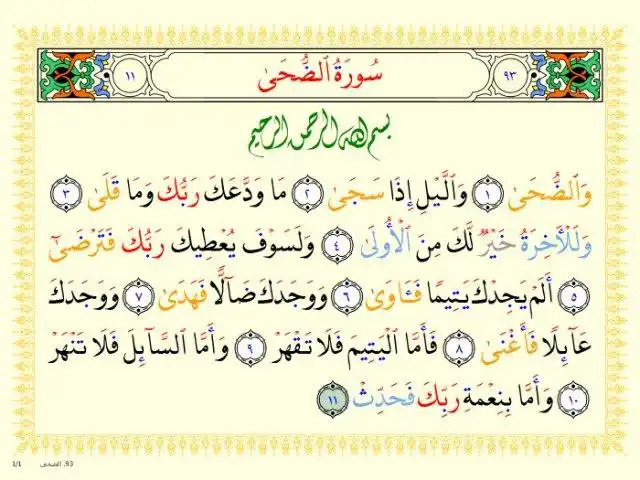 ٩٣ سُورَةُ ٱلضُّحَىٰ ١١
بسم الله الرحمن الرحيم
وَٱلضُّحَىٰ ١ وَٱلَّيْلِ إِذَا سَجَىٰ ٢ مَا وَدَّعَكَ رَبُّكَ وَمَا قَلَىٰ ٣
وَلَلْأَخِرَةُ خَيْرٌ لَّكَ مِنَ ٱلْأُولَىٰ ٤ وَلَسَوْفَ يُعْطِيكَ رَبُّكَ فَتَرْضَىٰٓ
٥ أَلَمْ يَجِدْكَ يَتِيمًا فَـَٔاوَىٰ ٦ وَوَجَدَكَ ضَآلًّا فَهَدَىٰ ٧ وَوَجَدَكَ
عَآئِلًا فَأَغْنَىٰ ٨ فَأَمَّا ٱلْيَتِيمَ فَلَا تَقْهَرْ ٩ وَأَمَّا ٱلسَّآئِلَ فَلَا تَنْهَرْ
١٠ وَأَمَّا بِنِعْمَةِ رَبِّكَ فَحَدِّثْ ١١
93. الضحى 1/1